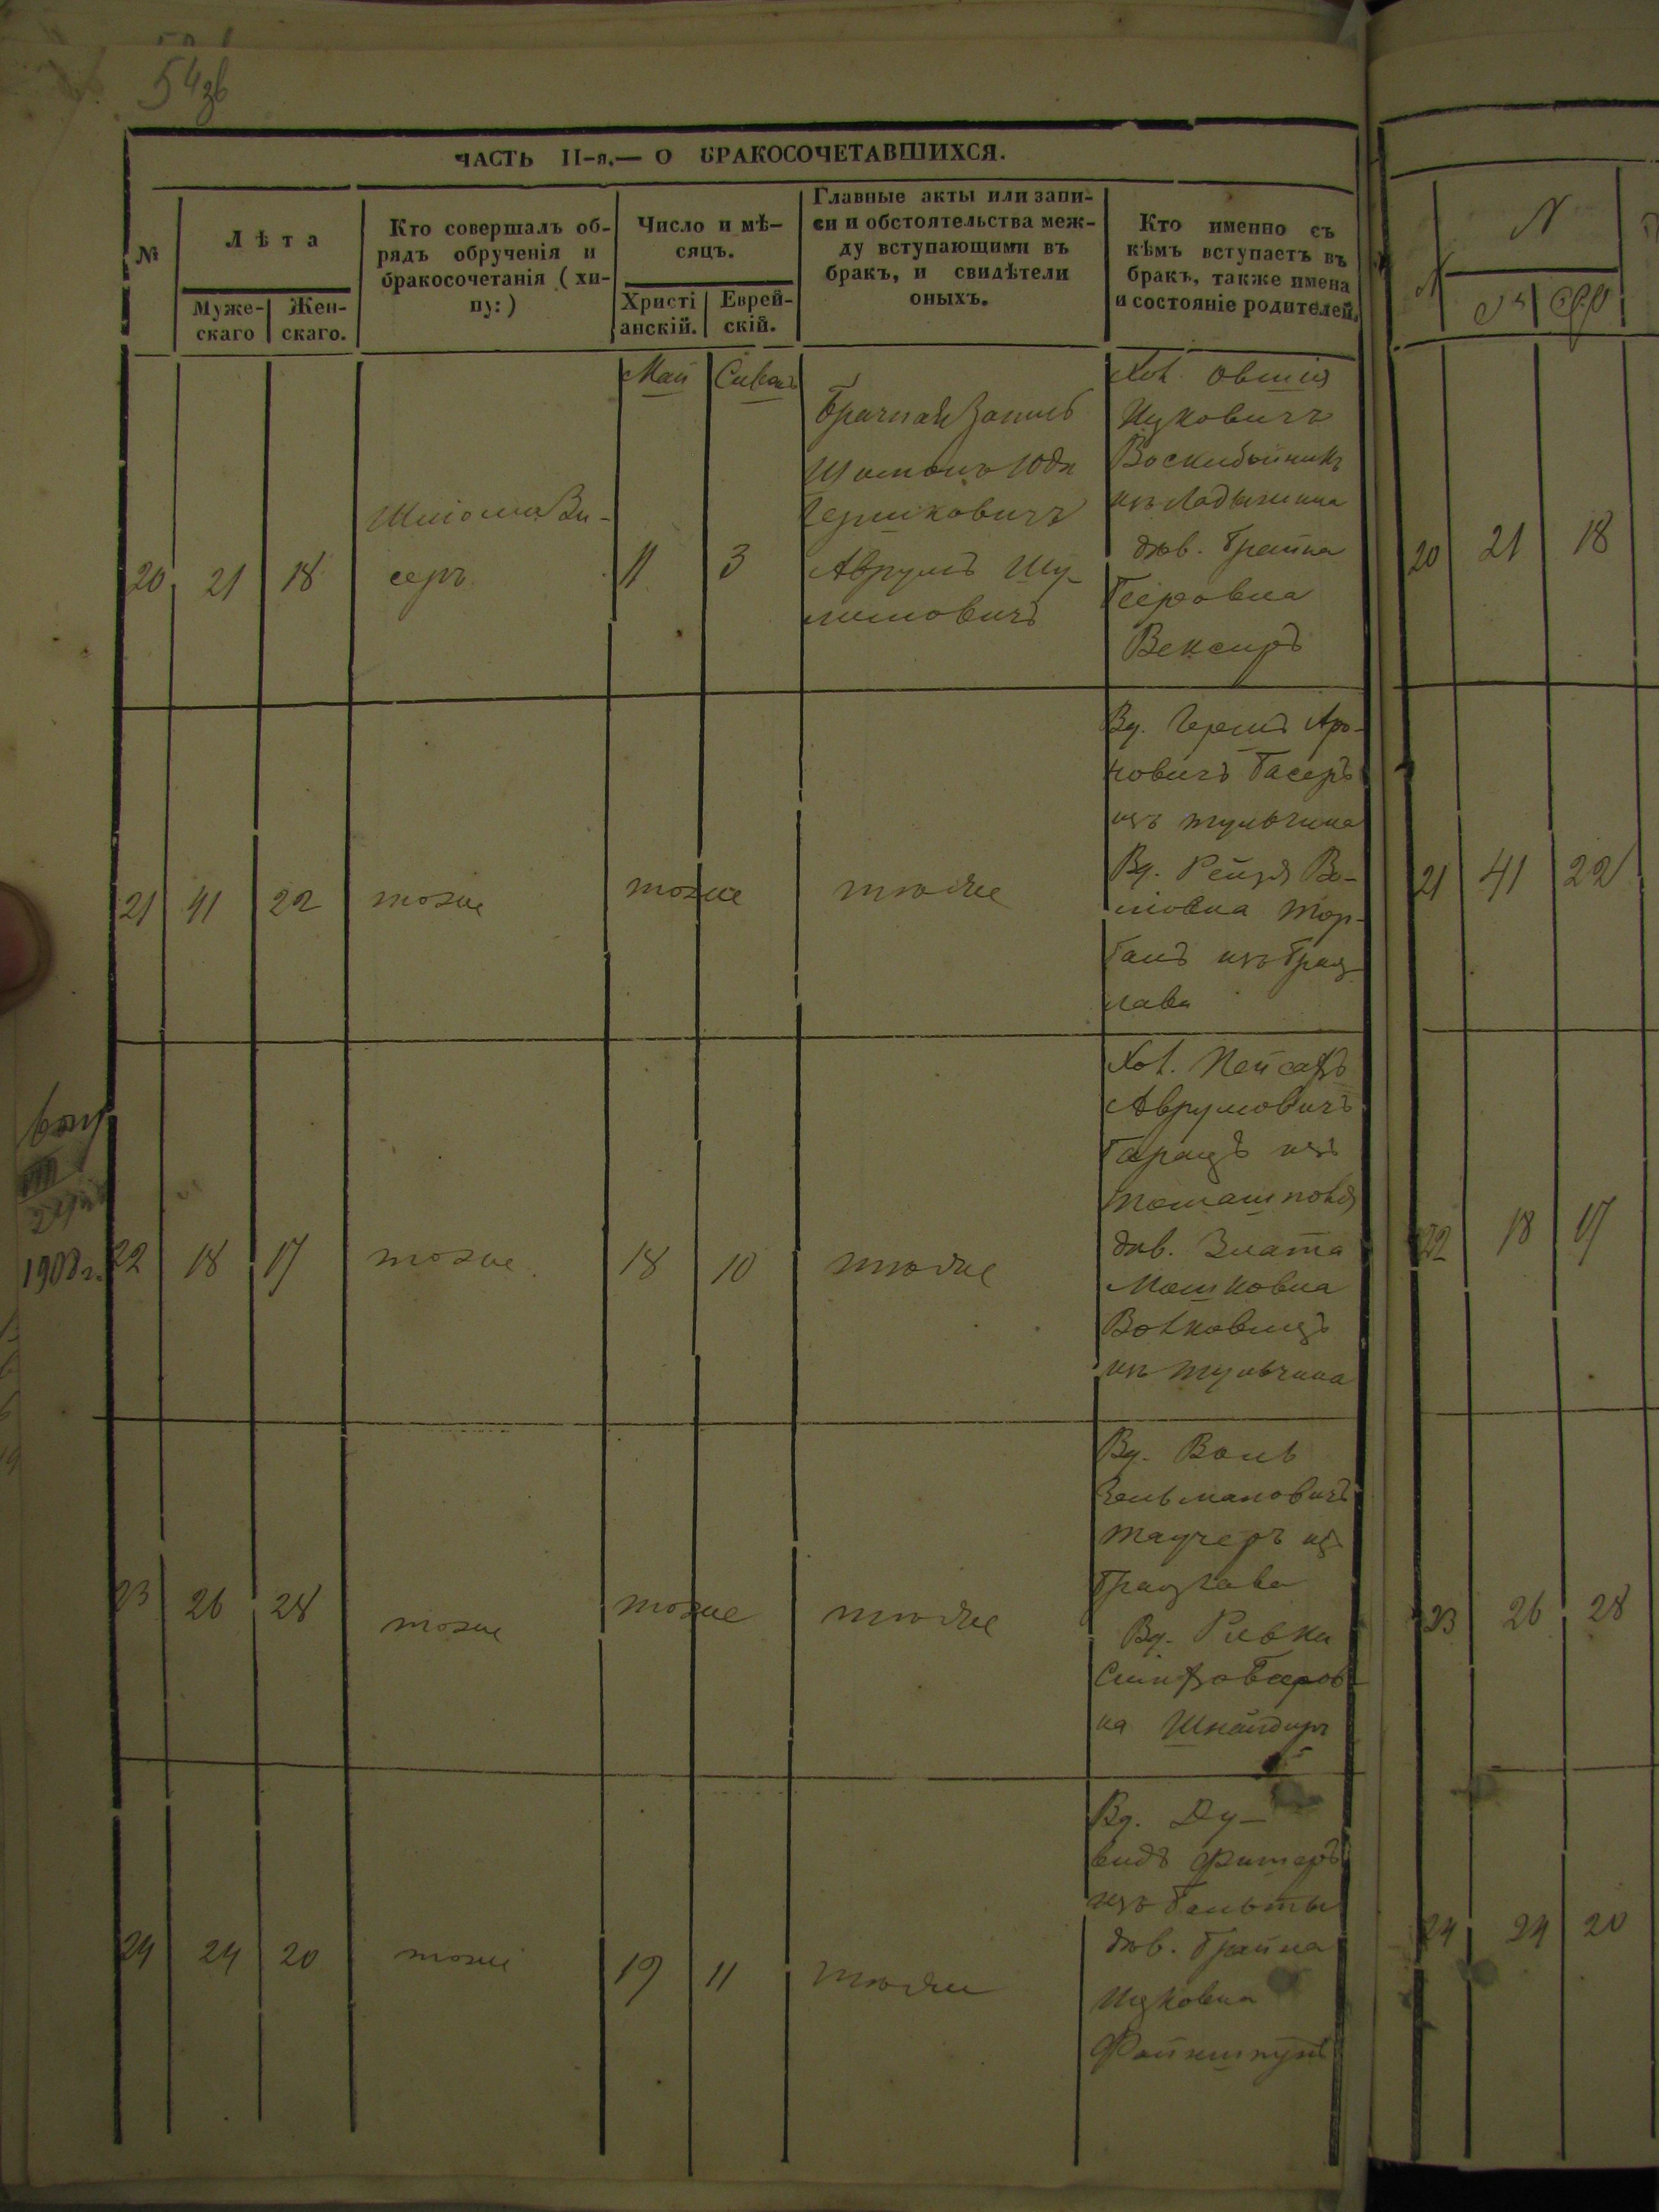 54зв
ЧАСТЬ II-я.— О БРАКОСОЧЕТАВШИХСЯ.
№
Лѣта
Муже-
скаго
Жен-
скаго.
Кто совершалъ об-
рядъ обрученія и
бракосочетанія (хи-
пу:)
Число и мѣ-
сяцъ.
Христі
анскій.
Еврей-
скій.
Главные акты или запи-
си и обстоятельства меж-
ду вступающими въ
бракъ, и свидѣтели
оныхъ.
Кто именно съ
кѣмъ вступаетъ въ
бракъ, также имена
и состояніе родителей.
Май
Сиванъ
20
21
18
Шліома Ви-
серъ
11
3
Брачная Запись
Гершковичъ
Аврумъ Шу-
лимовичъ
Хол. Овшія
Ицковичъ
Воскибойникъ
изъ Ладыжина
дѣв. Брайна
Беровна
Вексиръ
21
41
22
тоже
тоже
тоже
Вд. Гершъ Аро-
новичъ Басеръ
изъ Тульчина
Вд. Рейзя Во-
лговна Тор-
ганъ изъ Брац-
лава
1908 г.
22
18
17
тоже
18
10
тоже
Хол. Пейсахъ
Аврумовичъ
изъ
Томашполя
дѣв. Злата
Мошковна
изъ Тульчина
23
26
28
тоже
тоже
тоже
Вд. Воль
Зельмановичъ
Таучеръ из
Брацлава
Вд. Ривка
Симхо Беров-
на Шнайдиръ
24
24
20
тоже
19
11
тоже
Вд. Ду-
видъ Фитеръ
изъ Балты
дѣв. Брайна
Ицковна
20
21
18
21
41
22
22
18
17
23
26
28
24
24
20